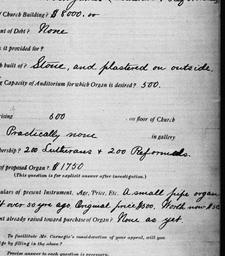 of Church Building? $8000.00
nt of Debt? None
s it provided for?
h built of? Stone, and plastered on outside,
g Capacity of Auditorium for which Organ is desired? 500.
rising 600 on floor of Church
Practically none in gallery
bership? 200 Lutherans & 200 Reformeds.
of proposed Organ? $1750
(This question is for explicit answer after investigation.)
ulars of present Instrument, Age, Price, Etc. A small pipe organ
t over 50 yrs ago Original price $500. Worth now $50
nt already raised toward purchase of Organ? None as yet.
To facilitate Mr. Carnegie's consideration of your appeal, will you
ge by filling in the above?
Precise answer to each question is necessary.